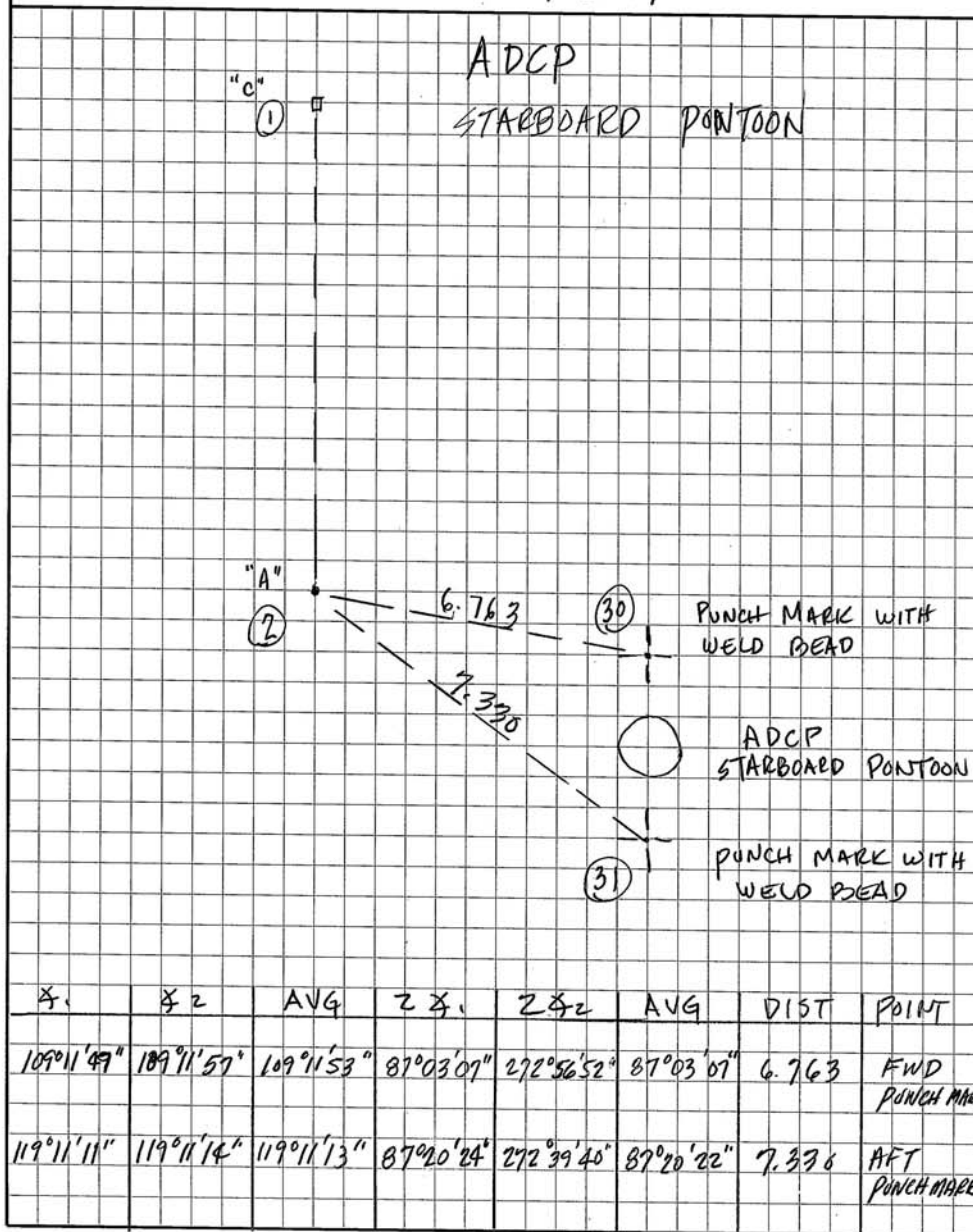 ADCP
"C"
① STARBOARD PONTOON
"A"
② 6.763 ㉚ PUNCH MARK WITH
WELD BEAD
7.330
ADCP
STARBOARD PONTOON
㉛ PUNCH MARK WITH
WELD BEAD
∡1 ∡2 AVG Z∡1 Z∡2 AVG DIST POINT
109°11'49" 109°11'57" 109°11'53" 87°03'07" 272°56'52" 87°03'07" 6.763 FWD
PUNCH MAR
119°11'11" 119°11'14" 119°11'13" 87°20'24" 272°39'40" 87°20'22" 7.330 AFT
PUNCH MARK